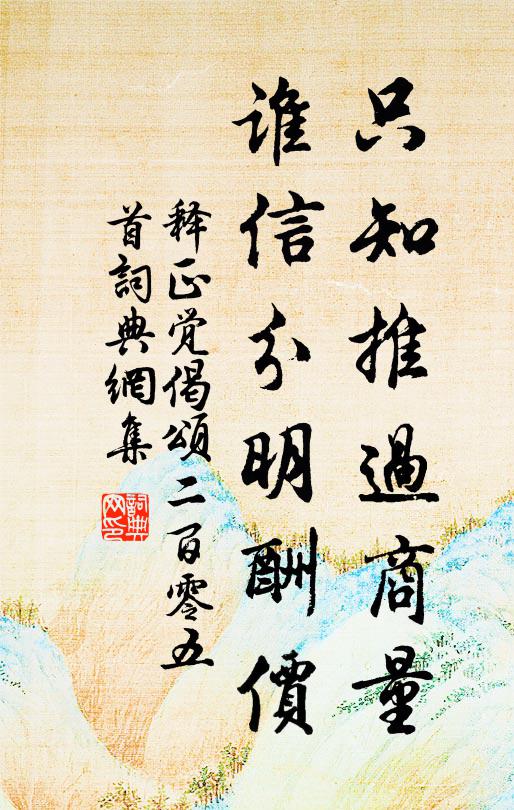 只知推過商量
誰信分明酬價
释正觉偈頌二百零五
首詞典網集
詞典网印